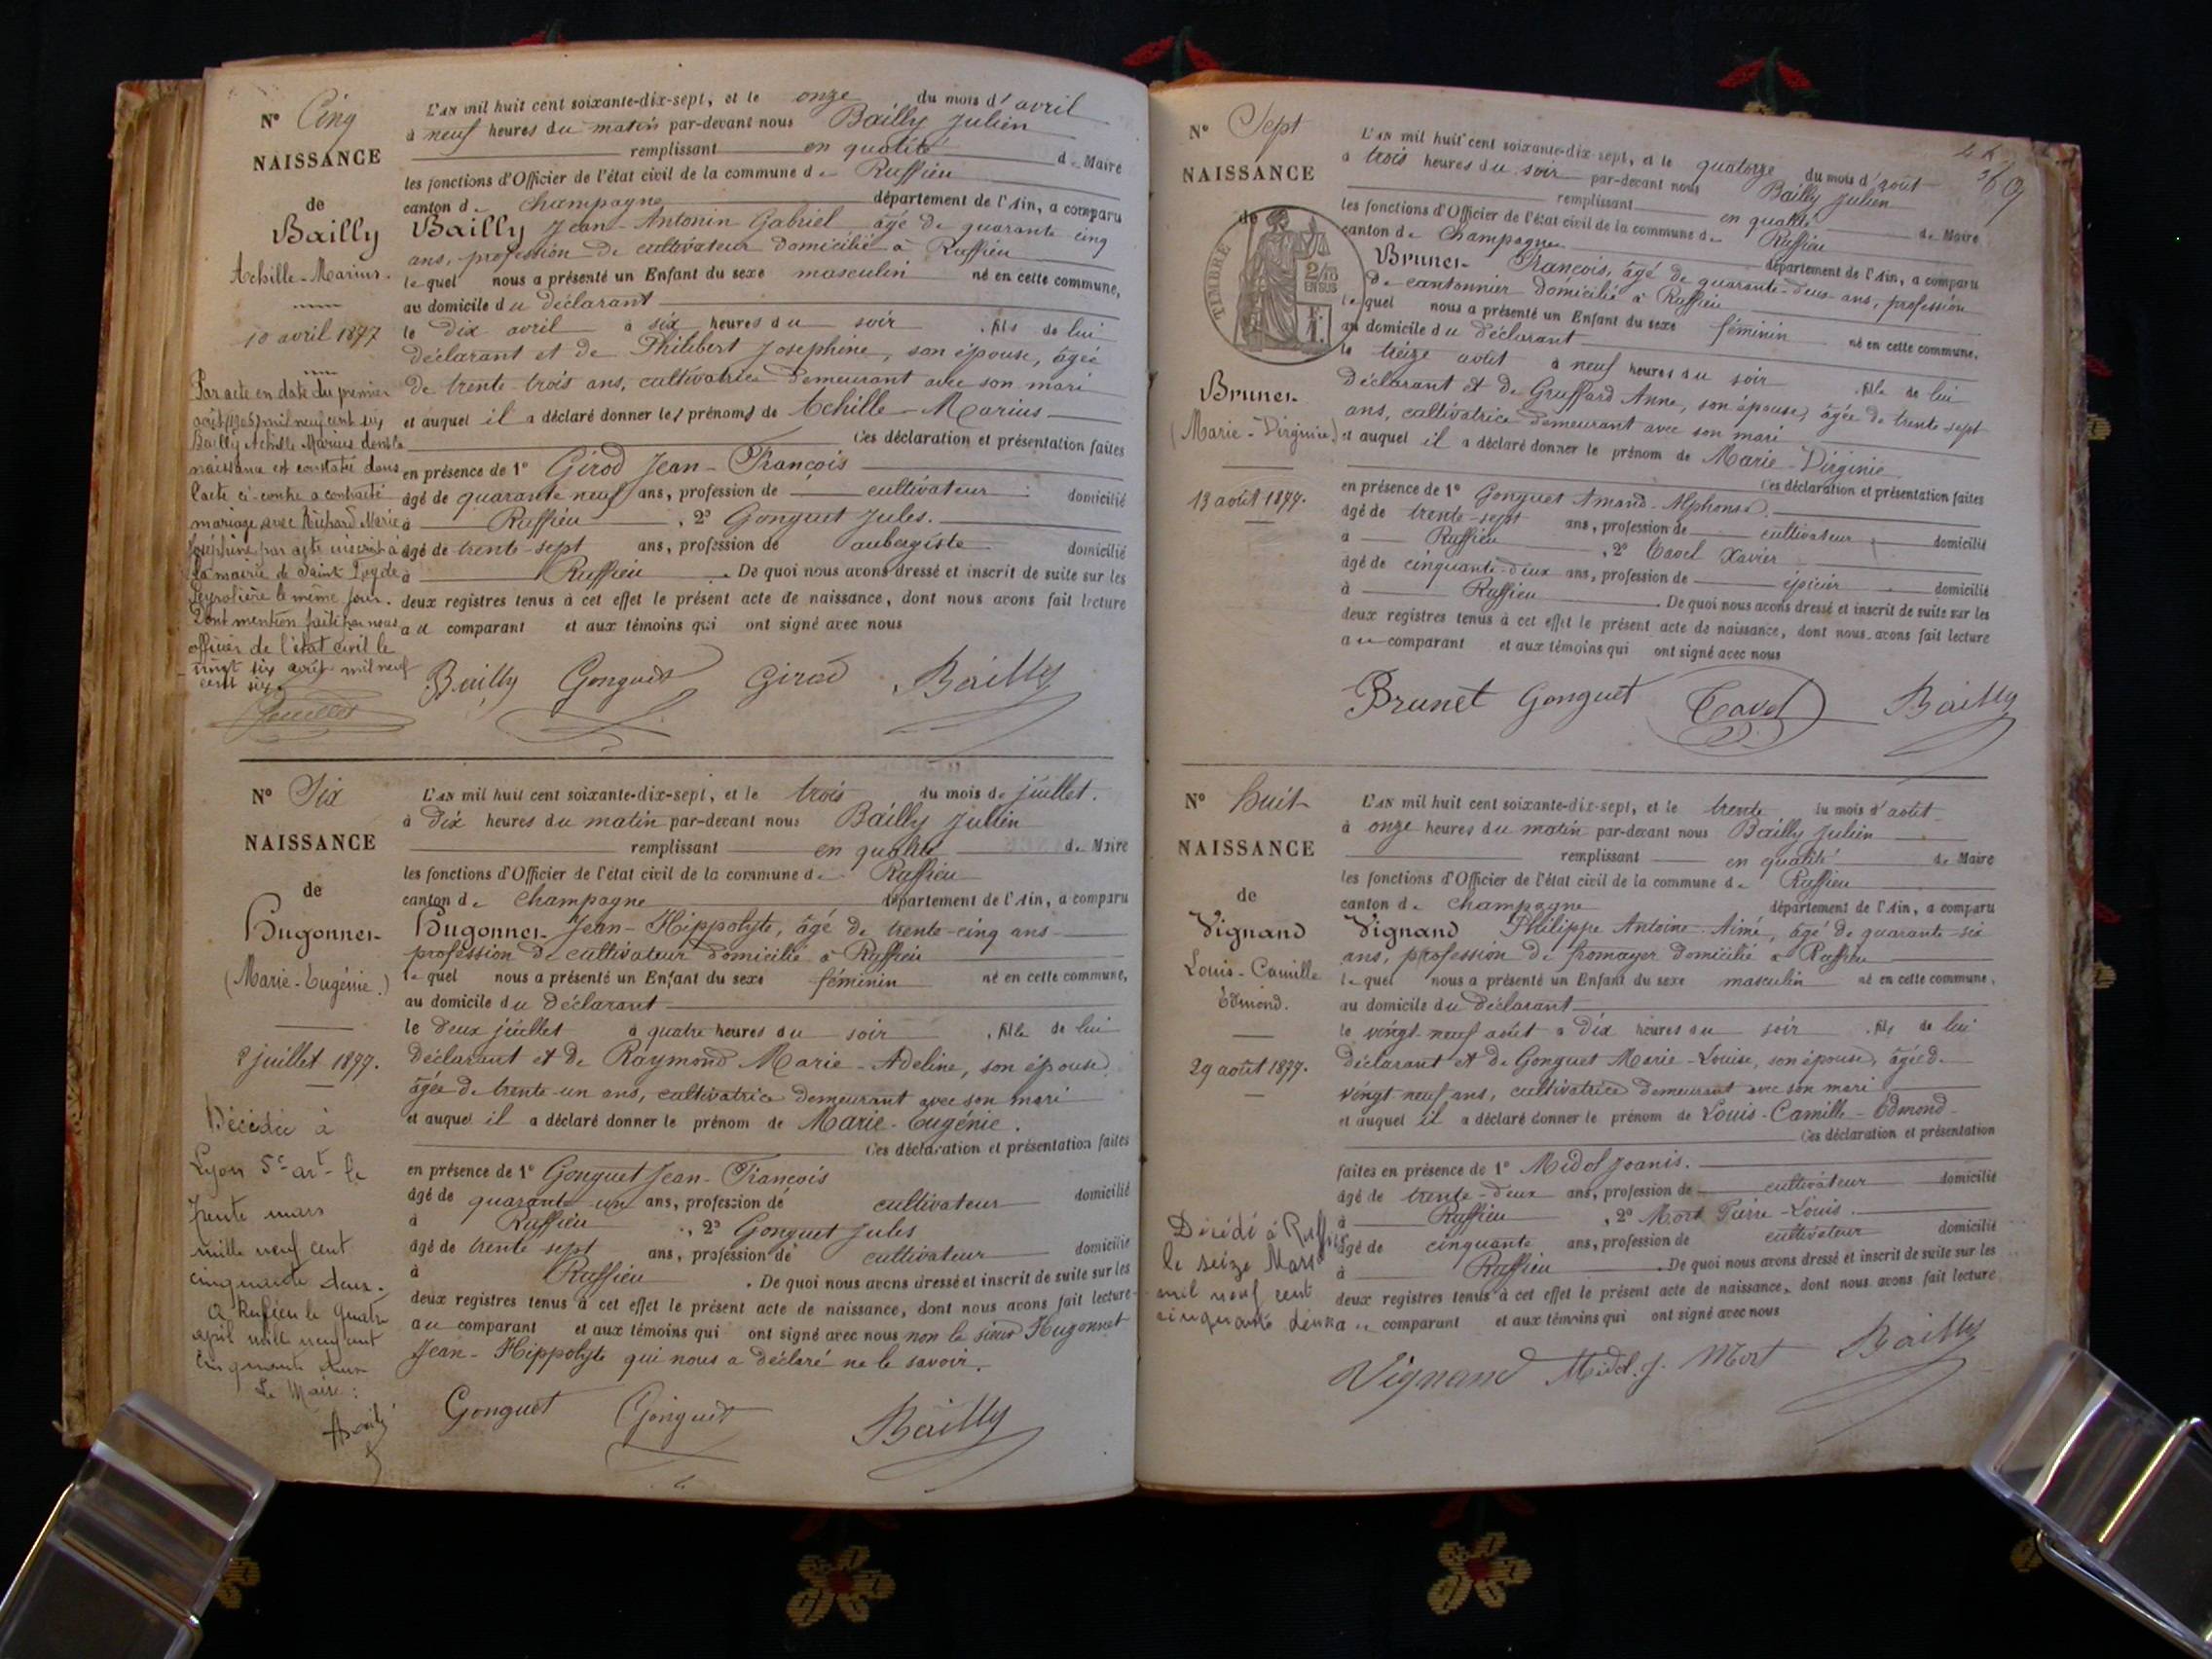 N° Cinq
NAISSANCE
de
Bailly
Achille-Marius.
10 avril 1877
Par acte en date du premier
août (1906) mil neuf cent six,
Bailly Achille Marius dont la
naissance est constatée dans
l'acte ci-contre a contracté
mariage avec Richard Marie
Joséphine par acte inscrit à
la mairie de Saint
le même jour.
Dont mention faite par nous
officier de l'état civil le
vingt six août mil neuf
cent six.
L'AN mil huit cent soixante-dix-sept, et le onze du mois d'avril
à neuf heures du matin par-devant nous Bailly Julien
remplissant en qualité de Maire
les fonctions d'Officier de l'état civil de la commune de Ruffieu
canton de Champagne département de l'Ain, a comparu
Bailly Jean-Antonin Gabriel âgé de quarante cinq
ans, profession de cultivateur domicilié à Ruffieu
lequel nous a présenté un Enfant du sexe masculin né en cette commune,
au domicile du déclarant
le dix avril à six heures du soir, fils de lui
déclarant et de Philibert Josephine, son épouse, âgée
de trente trois ans, cultivatrice demeurant avec son mari
et auquel il a déclaré donner les prénoms de Achille-Marius
Ces déclaration et présentation faites
en présence de 1° Girod Jean-François
âgé de quarante neuf ans, profession de cultivateur domicilié
à Ruffieu, 2° Gonguet Jules.
âgé de trente-sept ans, profession de aubergiste domicilié
à Ruffieu. De quoi nous avons dressé et inscrit de suite sur les
deux registres tenus à cet effet le présent acte de naissance, dont nous avons fait lecture
au comparant et aux témoins qui ont signé avec nous
Bailly Gonguet Girod Bailly
N° Six
NAISSANCE
de
Hugonnet
(Marie-Eugénie.)
2 juillet 1877.
Décédée à
Lyon 5e art le
trente mars
mille neuf cent
cinquante deux.
A Rufieu le quatre
april mille neuf cent
cinquante deux
Le Maire:
L'AN mil huit cent soixante-dix-sept, et le trois du mois de juillet.
à dix heures du matin par-devant nous Bailly Julien
remplissant en qualité de Maire
les fonctions d'Officier de l'état civil de la commune de Ruffieu
canton de Champagne département de l'Ain, a comparu
Hugonnet Jean-Hippolyte, âgé de trente-cinq ans
profession de cultivateur domicilié à Ruffieu
lequel nous a présenté un Enfant du sexe féminin né en cette commune,
au domicile du déclarant
le deux juillet à quatre heures du soir, fille de lui
déclarant et de Raymond Marie-Adeline, son épouse,
âgée de trente-un ans, cultivatrice demeurant avec son mari
et auquel il a déclaré donner le prénom de Marie-Eugénie.
Ces déclaration et présentation faites
en présence de 1° Gonguet Jean-François
âgé de quarante-un ans, profession de cultivateur domicilié
à Ruffieu, 2° Gonguet Jules
âgé de trente sept ans, profession de cultivateur domicilié
à Ruffieu. De quoi nous avons dressé et inscrit de suite sur les
deux registres tenus à cet effet le présent acte de naissance, dont nous avons fait lecture
au comparant et aux témoins qui ont signé avec nous non le sieur Hugonnet
Jean-Hippolyte qui nous a déclaré ne le savoir.
Gonguet Gonguet Bailly
N° Sept
NAISSANCE
de
TIMBRE
2/10
EN SUS
Brunet
(Marie-Virginie)
13 août 1877.
L'AN mil huit cent soixante-dix-sept, et le quatorze du mois d'août
à trois heures du soir par-devant nous Bailly Julien
remplissant en qualité de Maire
les fonctions d'Officier de l'état civil de la commune de Ruffieu
canton de Champagne département de l'Ain, a comparu
Brunet François, âgé de quarante-deux ans, profession
de cantonnier domicilié à Ruffieu
lequel nous a présenté un Enfant du sexe féminin né en cette commune,
au domicile du déclarant
le treize août à neuf heures du soir, fille de lui
déclarant et de Gruffard Anne, son épouse, âgée de trente-sept
ans, cultivatrice demeurant avec son mari
et auquel il a déclaré donner le prénom de Marie-Virginie
Ces déclaration et présentation faites
en présence de 1° Gonguet Amand-Alphonse.
âgé de trente-sept ans, profession de cultivateur domicilié
à Ruffieu, 2° Tavel Xavier
âgé de cinquante-deux ans, profession de épicier domicilié
à Ruffieu. De quoi nous avons dressé et inscrit de suite sur les
deux registres tenus à cet effet le présent acte de naissance, dont nous avons fait lecture
au comparant et aux témoins qui ont signé avec nous
Brunet Gonguet Tavel Bailly
N° huit
NAISSANCE
de
Vignand
Louis-Camille
Edmond.
29 août 1877.
Décédé à Ruffieu
le seize Mars
mil neuf cent
cinquante deux
L'AN mil huit cent soixante-dix-sept, et le trente du mois d'août
à onze heures du matin par-devant nous Bailly Julien
remplissant en qualité de Maire
les fonctions d'Officier de l'état civil de la commune de Ruffieu
canton de Champagne département de l'Ain, a comparu
Vignand Philippe Antoine-Aimé, âgé de quarante-six
ans, profession de fromager domicilié à Ruffieu
lequel nous a présenté un Enfant du sexe masculin né en cette commune,
au domicile du déclarant
le vingt-neuf août à dix heures du soir, fils de lui
déclarant et de Gonguet Marie-Louise, son épouse, âgée de
vingt neuf ans, cultivatrice demeurant avec son mari
et auquel il a déclaré donner le prénom de Louis-Camille-Edmond
Ces déclaration et présentation
faites en présence de 1° Midol Joanis.
âgé de trente-deux ans, profession de cultivateur domicilié
à Ruffieu, 2° Mort Pierre-Louis.
âgé de cinquante ans, profession de cultivateur domicilié
à Ruffieu. De quoi nous avons dressé et inscrit de suite sur les
deux registres tenus à cet effet le présent acte de naissance, dont nous avons fait lecture
au comparant et aux témoins qui ont signé avec nous
Vignand Midol. J. Mort Bailly